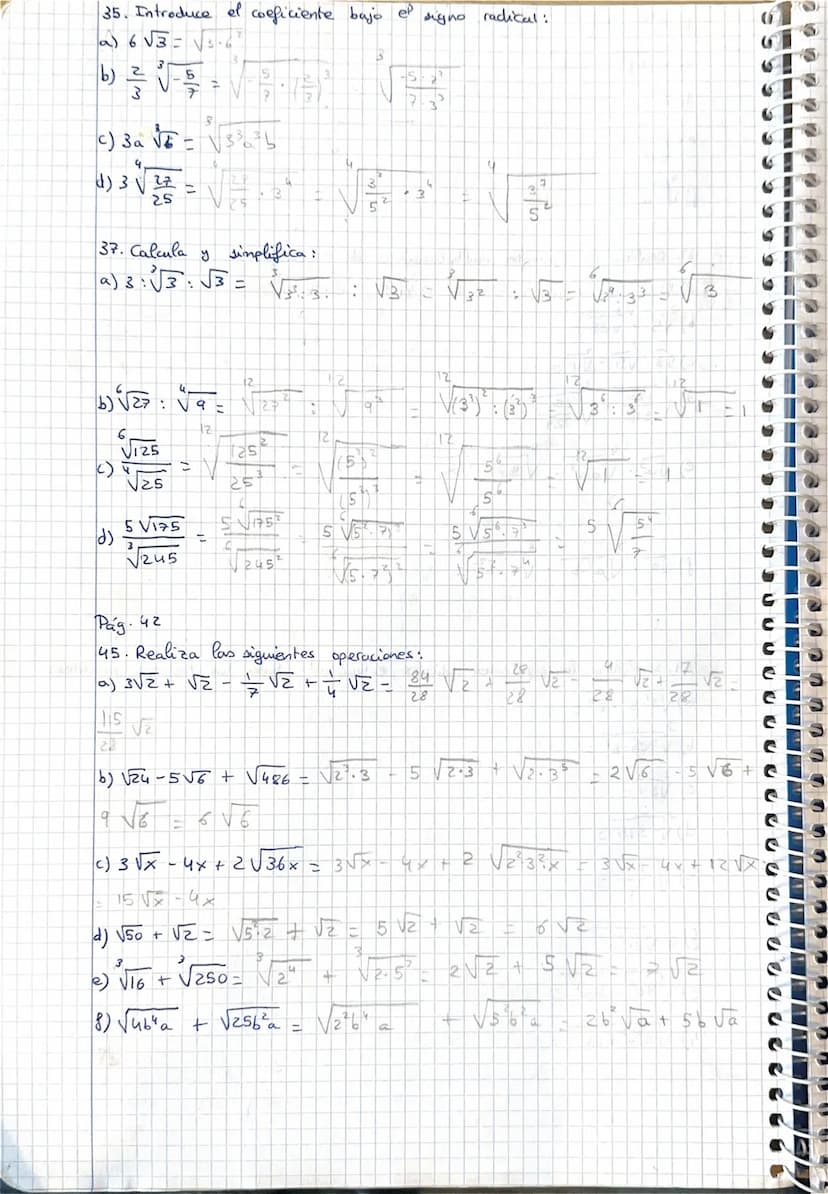 35. Introduce el coeficiente bajo el signo radical:
a) 6√3 = √(3·6²)
b) 2/3 ∛(-5/7) = ∛(-5/7 · (2/3)³) ∛(-5·2³/7·3³)
c) 3a ∛b = ∛(3³a³b)
d) 3 ⁴√(27/25) = ⁴√(27/25 · 3⁴) = ⁴√(3³/5² · 3⁴) = ⁴√(3⁷/5²)
37. Calcula y simplifica:
a) 3 : ∛3 : √3 = ∛(3³:3) : √3 = ∛(3²) : √3 = ⁶√(3⁴:3³) = ⁶√3
b) ⁶√27 : ⁴√9 = ¹²√(27²) : ¹²√(9³) = ¹²√((3³)² : (3²)³) = ¹²√(3⁶ : 3⁶) = ¹²√1 = 1
c) ⁶√125 / ⁴√25 = ¹²√(125²/25³) = ¹²√((5³)²/(5²)³) = ¹²√(5⁶/5⁶) = ¹²√1 = 1
d) 5√175 / ∛245 = 5 ⁶√(175³) / ⁶√(245²) = 5 ⁶√(5²·7)³ / ⁶√(5·7²)² = 5 ⁶√(5⁶·7³) / ⁶√(5²·7⁴) = 5 ⁶√(5⁴/7)
Pág. 42
45. Realiza las siguientes operaciones:
a) 3√2 + √2 - 1/7 √2 + 1/4 √2 = 84/28 √2 + 28/28 √2 - 4/28 √2 + 7/28 √2 =
115/28 √2
b) √24 - 5√6 + √486 = √(2³·3) - 5 √(2·3) + √(2·3⁵) = 2√6 - 5 √6 +
9 √6 = 6 √6
c) 3√x - 4x + 2√(36x) = 3√x - 4x + 2 √(2²3²·x) = 3√x - 4x + 12√x
= 15√x - 4x
d) √50 + √2 = √(5²·2) + √2 = 5√2 + √2 = 6√2
e) ∛16 + ∛250 = ∛(2⁴) + ∛(2·5³) = 2√2 + 5√2 = 7√2
f) √(4b⁴a) + √(25b²a) = √(2²b⁴a) + √(5²b²a) = 2b²√a + 5b√a